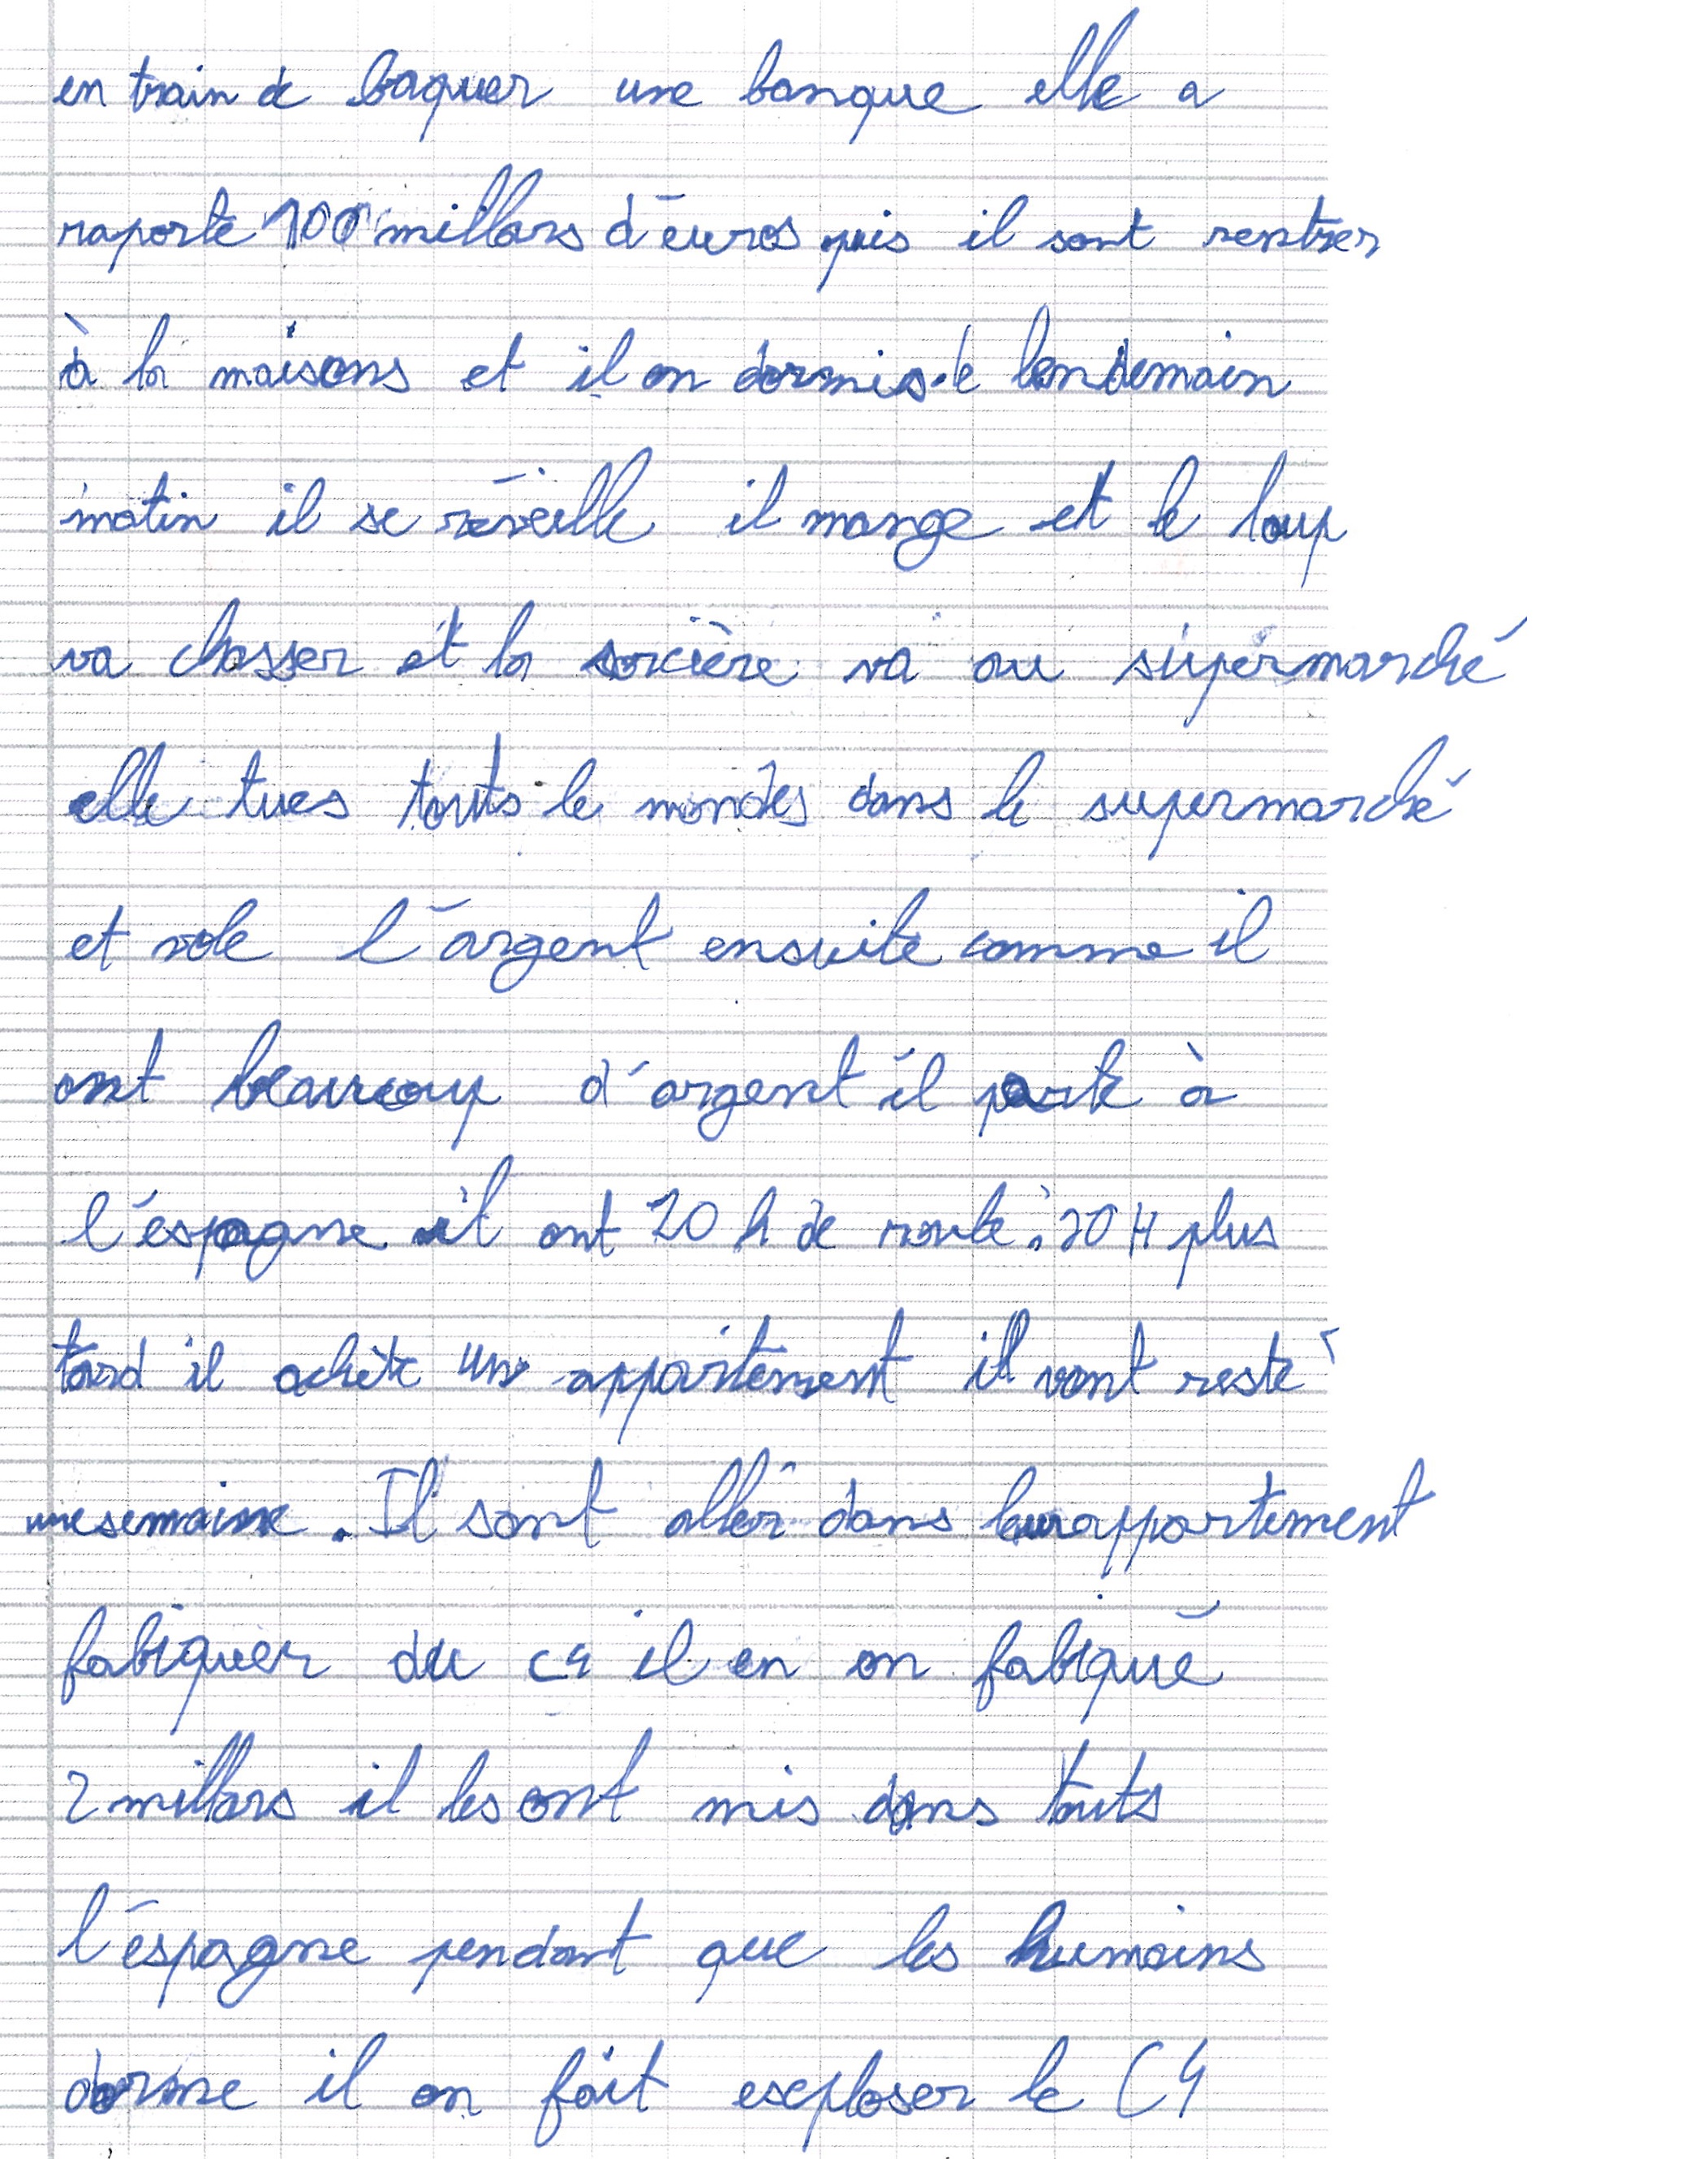 en train de baquer une banque elle a
raporte 100 millars d'euros puis il sont rentrer
à la maisons et il on dormis. le lendemain
matin il se réveille il mange et le loup
va chasser et la sorcière va au supérmarché
elle tues touts le mondes dans le supermarché
et vole l'argent ensuite comme il
ont beaucoup d'argent il parte à
l'éspagne il ont 20 h de route. 20 H plus
tard il achète un appartement il vont resté
une semaine. Il sont aller dans leur appartement
fabiquer du c4 il en on fabiqué
2 millars il les ont mis dans touts
l'éspagne pendant que les humains
dorme il on fait esxploser le C4